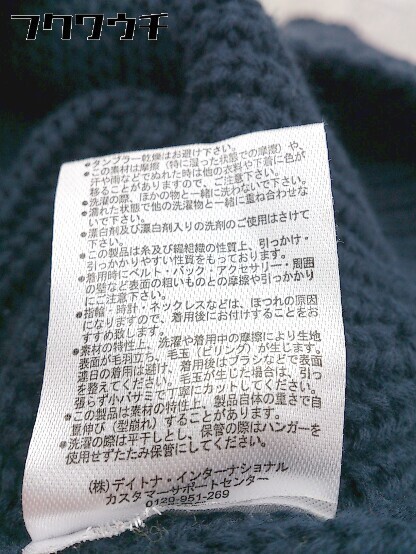 フクワウチ
●タンブラー乾燥はお避け下さい。
●この素材は摩擦（特に湿った状態での摩擦）や、
汗や雨などでぬれた時は他の衣料や下着に色が
移ることがありますので、ご注意下さい。
●洗濯の際、ほかの物と一緒に洗わないで下さい。
●濡れた状態で他の洗濯物と一緒に重ね合わせな
いで下さい。
●漂白剤及び漂白剤入りの洗剤のご使用はさけて
下さい。
●この製品は糸及び編組織の性質上、引っかけ・
引っつかかりやすい性質をもっております。
●着用時にベルト・バック・アクセサリー・周囲
の壁など表面の粗いものとの摩擦や引っかかり
にご注意下さい。
●指輪・時計・ネックレスなどは、ほつれの原因
になりますので、着用後にお付けすることをお
すすめ致します。
●素材の特性上、洗濯や着用中の摩擦により生地
表面が毛羽立ち、毛玉（ピリング）が生じます。
連日の着用は避け、着用後はブラシなどで表面
を整えてください。毛玉が生じた場合は、引っ
張らず小バサミで丁寧にカットしてください。
●この製品は素材の特性上、製品自体の重さで自
重伸び（型崩れ）することがあります。
●洗濯の際は平干しとし、保管の際はハンガーを
使用せずたたみ保管にしてください。
（株）デイトナ・インターナショナル
カスタマーサポートセンター
0120-951-269